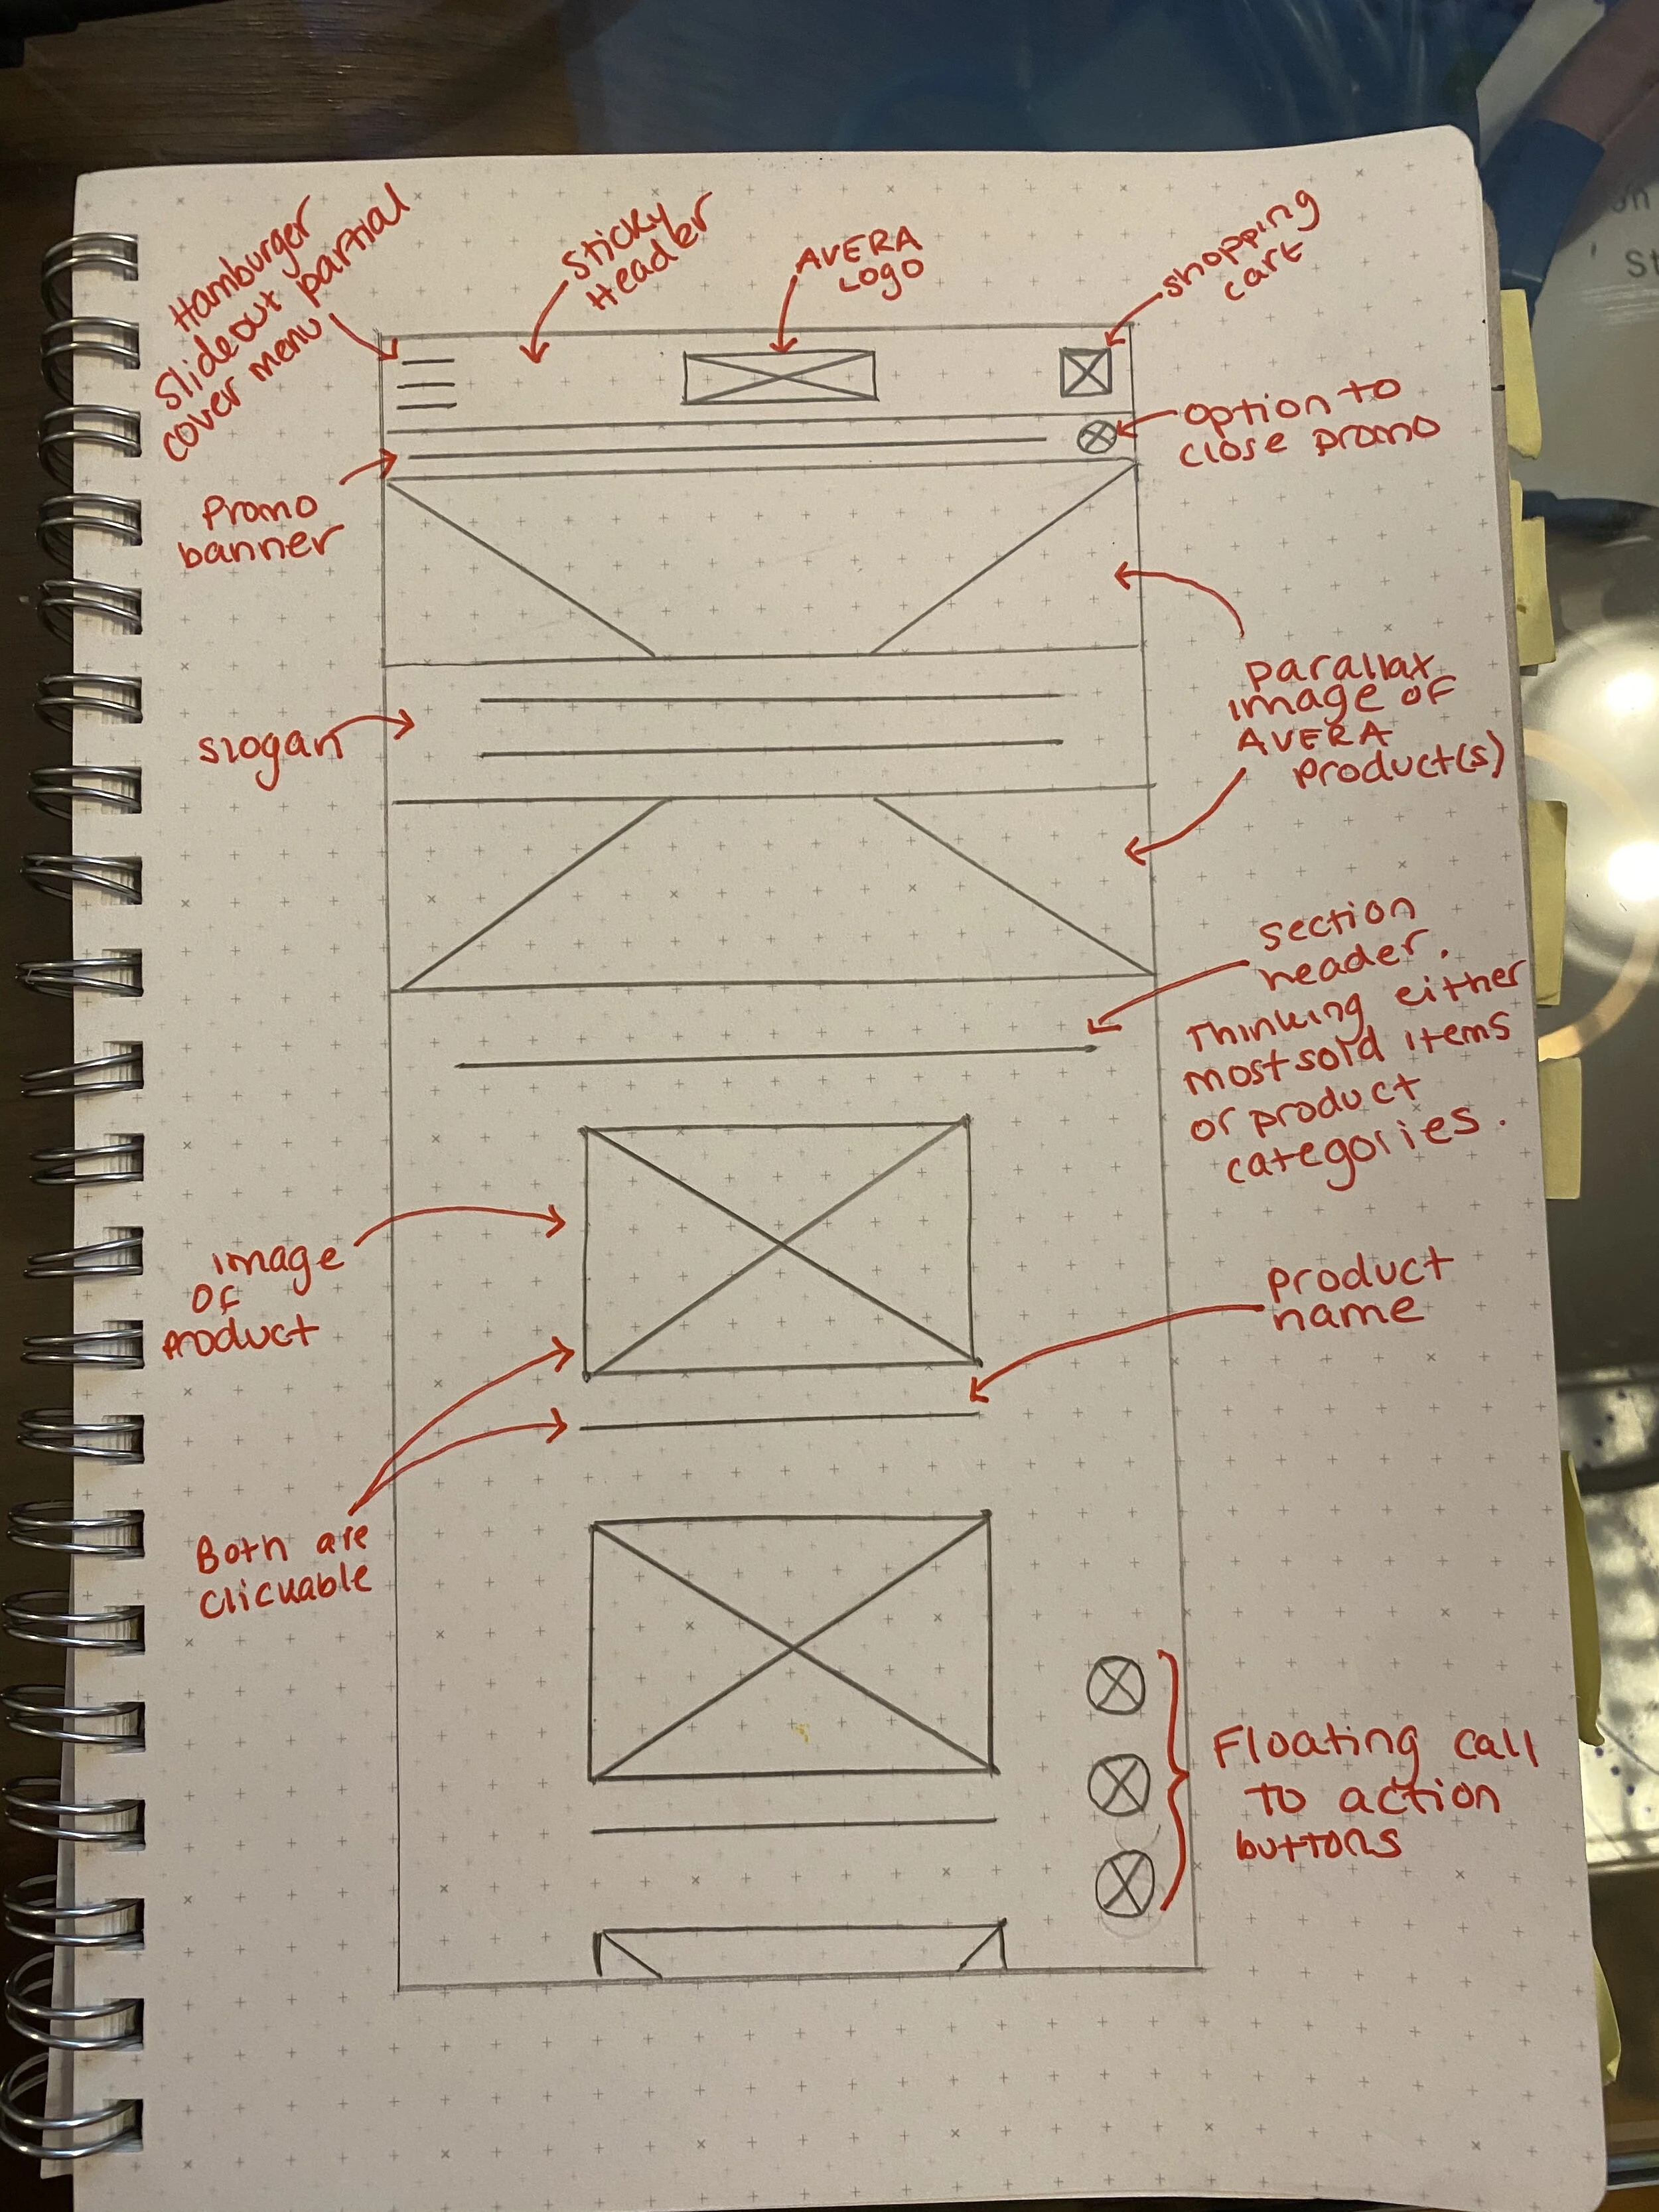 Hamburger
Slideout partial
cover menu
sticky
Header
AVERA
Logo
shopping
cart
option to
close promo
Promo
banner
slogan
parallax
image of
AVERA
product(s)
section
header.
Thinking either
most sold items
or product
categories.
image
of
product
product
name
Both are
clickable
Floating call
to action
buttons